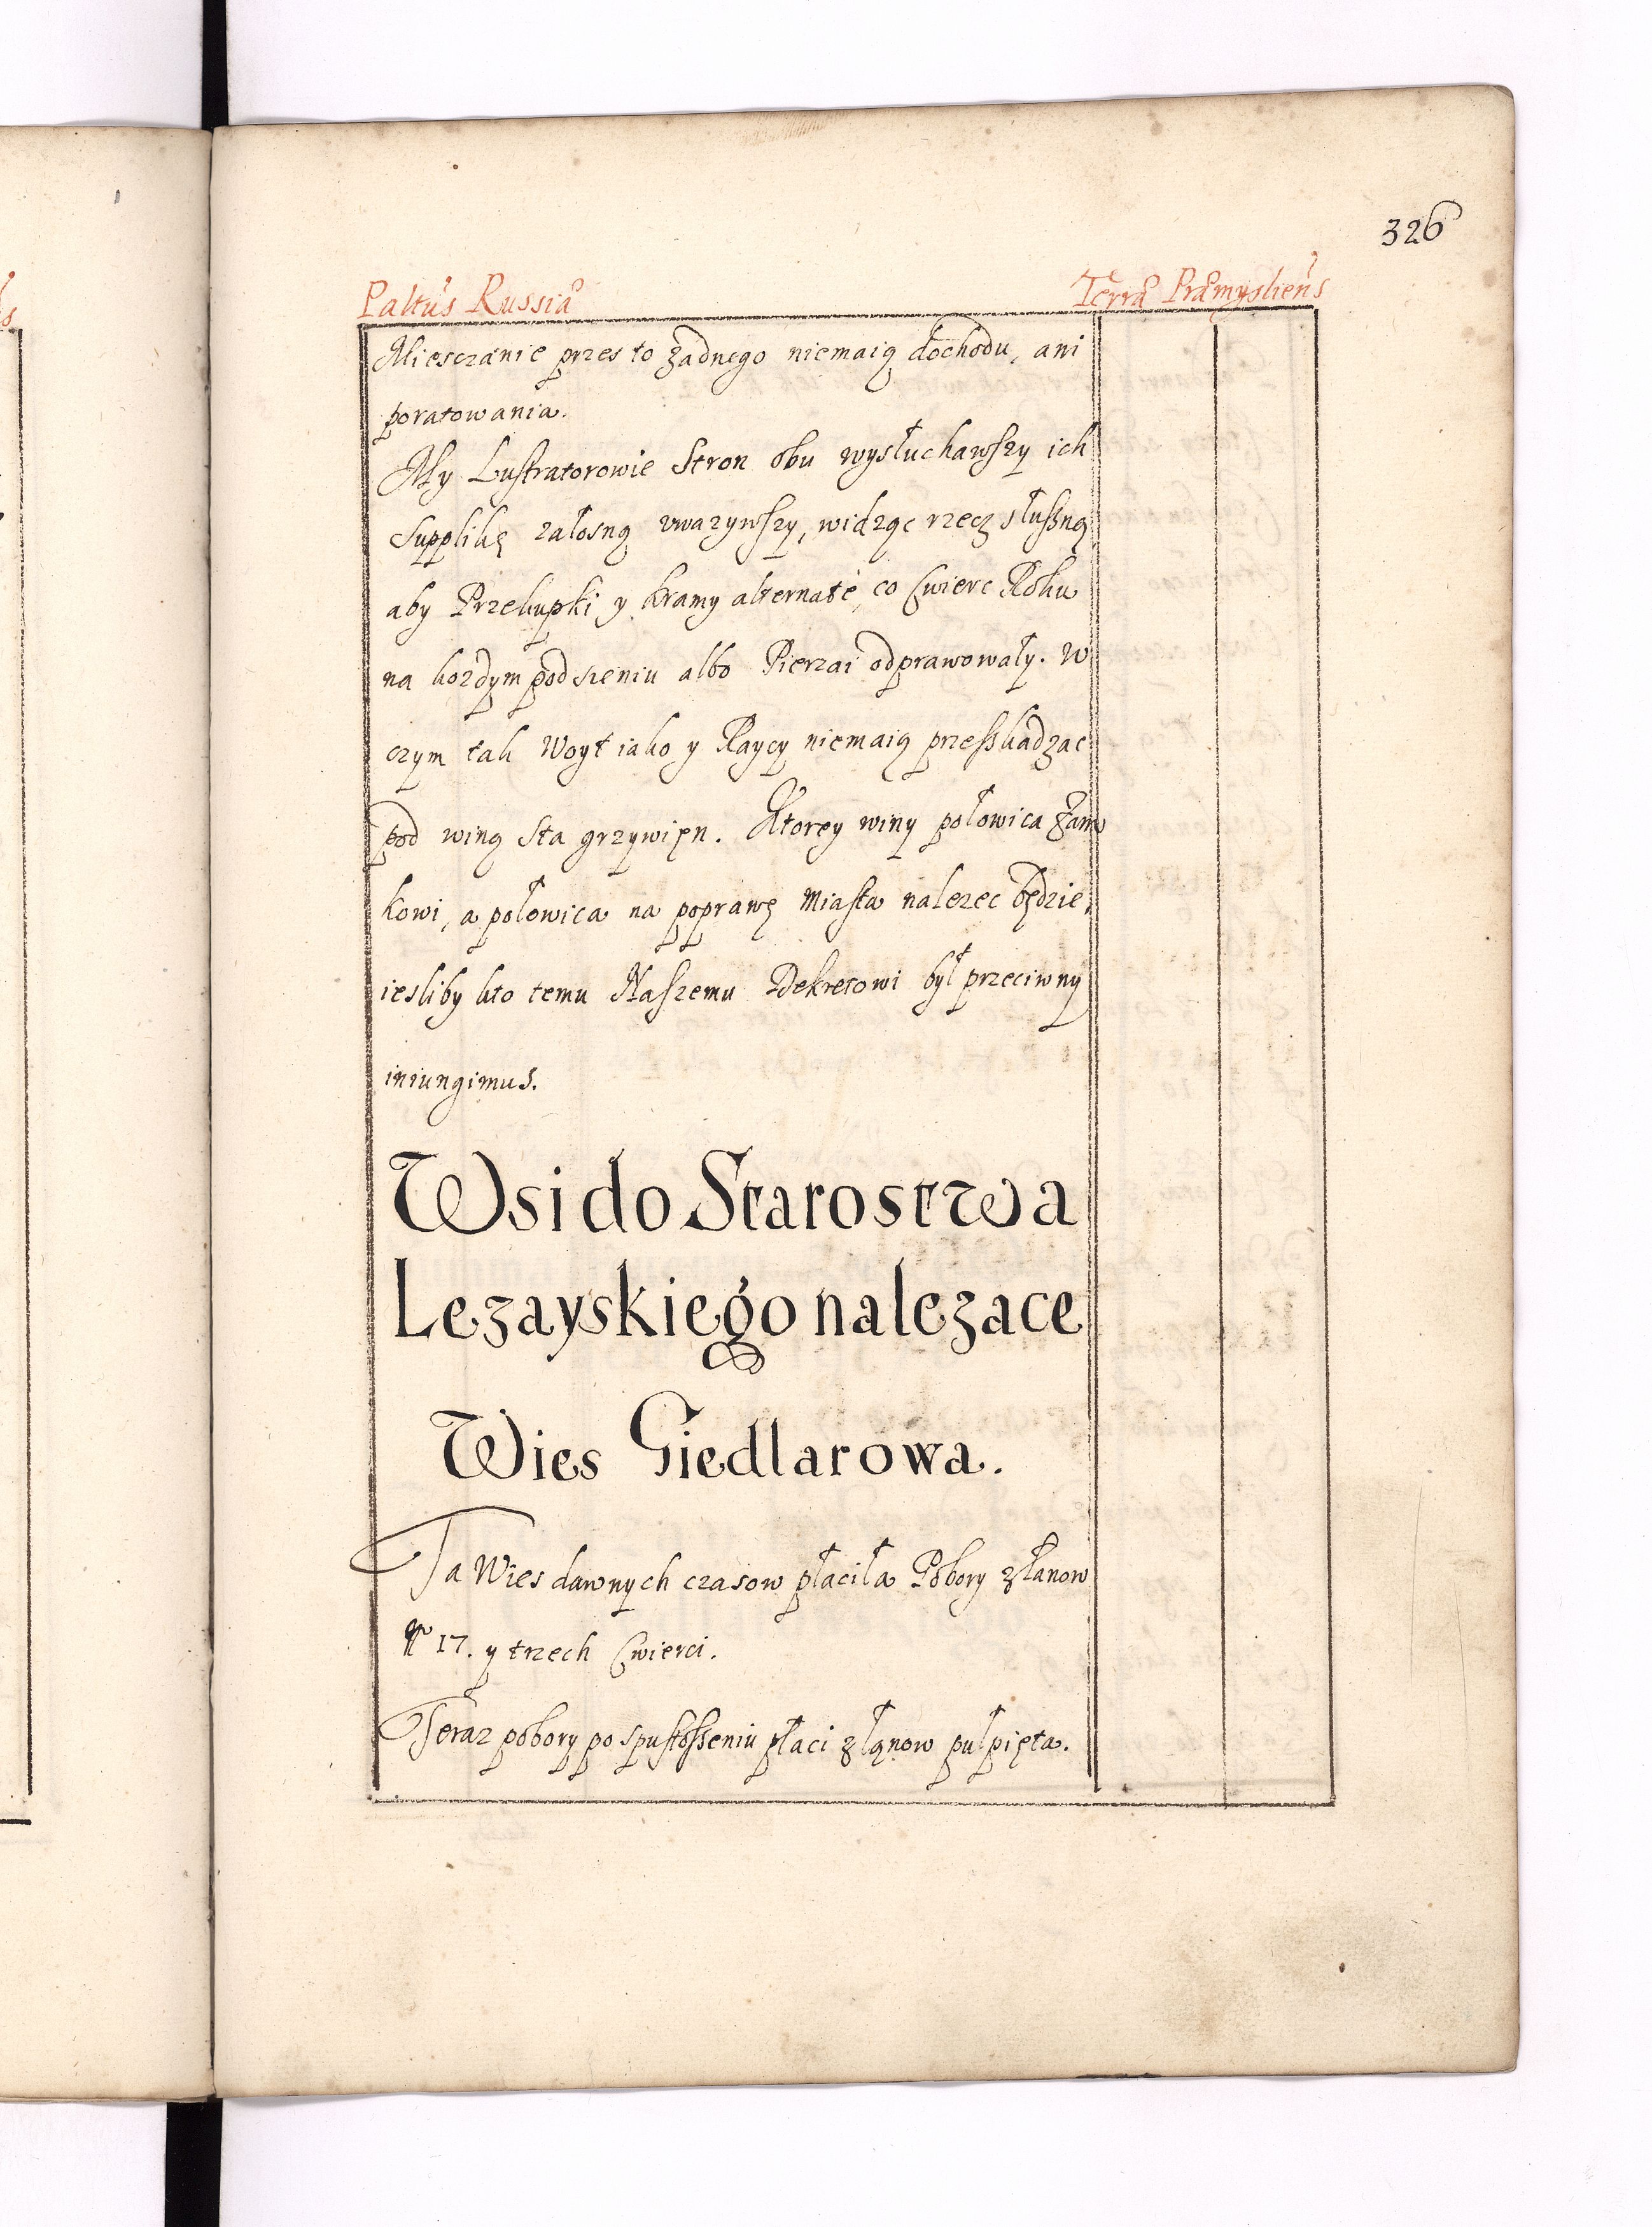 326
Paltus Russiæ
Terræ Præmysliens
Miesczanie przes to zadnego niemaią dochodu, ani
poratowania.
My Lustratorowie Stron obu wysłuchawszy ich
Supplikę załosną vwazywszy, widząc rzecz słuszną
aby Przekupki y kramy alternate, co Cwierc Roku
na kozdym podsieniu albo Pierzai odprawowały. W
czym tak Woyt iako y Raycy niemaią przesskadzac
pod winą sta grzywięn. Ktorey winy połowica zam
kowi, a połowica na poprawę Miasta nalezec będzie,
iesliby kto temu Naszemu Dekretowi był przeciwny
iniungimus.
Wsi do Starostwa
Lezayskiego nalezace
Wies Giedlarowa.
Ta Wies dawnych czasow płaciła Pobory z łanow
No 17. y trzech Cwierci.
Teraz pobory po spustosseniu płaci z łąnow pułpięta.